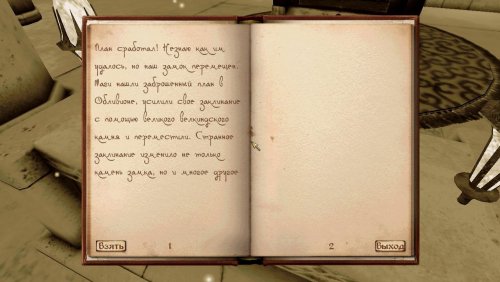 План сработал! Незнаю как им
удалось, но наш замок перемещен.
Маги нашли заброшенный план в
Обливионе, усилили свое заклинание
с помощью великого велкиндского
камня и переместили. Странное
заклинание изменило не только
камень замка, но и многое другое
Взять
1
2
Выход